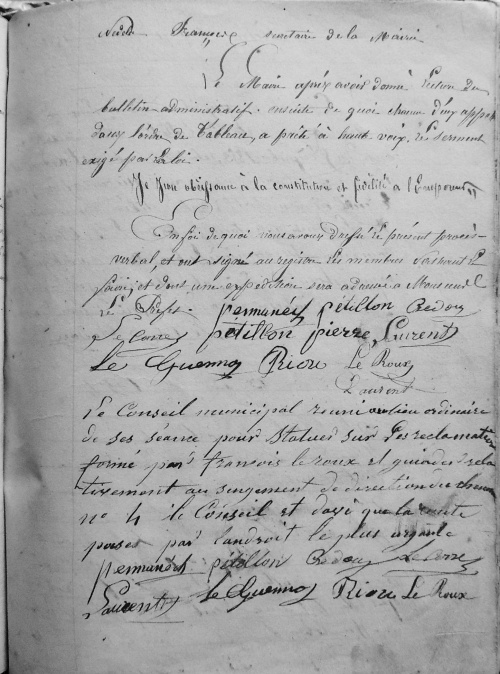 François secretaire de la Mairie
Le Maire après avoir donné lecture du
bulletin administratif ensuite de quoi chacun d'eux appelé
dans l'ordre du tableau, a prêté à haute voix, le serment
exigé par la loi.
Je Jure obéissance à la constitution et fidélité a l'Empereur
En foi de quoi nous avons dressé le présent procès-
verbal, et ont signé au registre les membres
et dont une expédition sera adressée a Monsieur
le Prefet. permanés pétillon Credou
Le Corre pétillon pierre, Laurent
Le Guennou Riou Le Roux
Laurent
Le Conseil municipal reuni au lieu ordinaire
de ses séance pour Statues sur Des reclamation
formé par francois le roux et
tivement au de direction du chemin
n° 4 le Conseil et davi que la route
passes par landroit le plus
permanés pétillon Credou Le Corre
Laurent Le Guennou Riou Le Roux